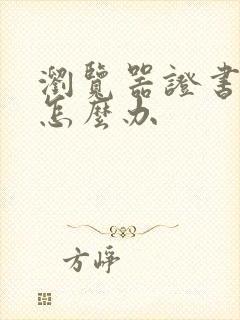 瀏覽器證書
怎麼办
方崢